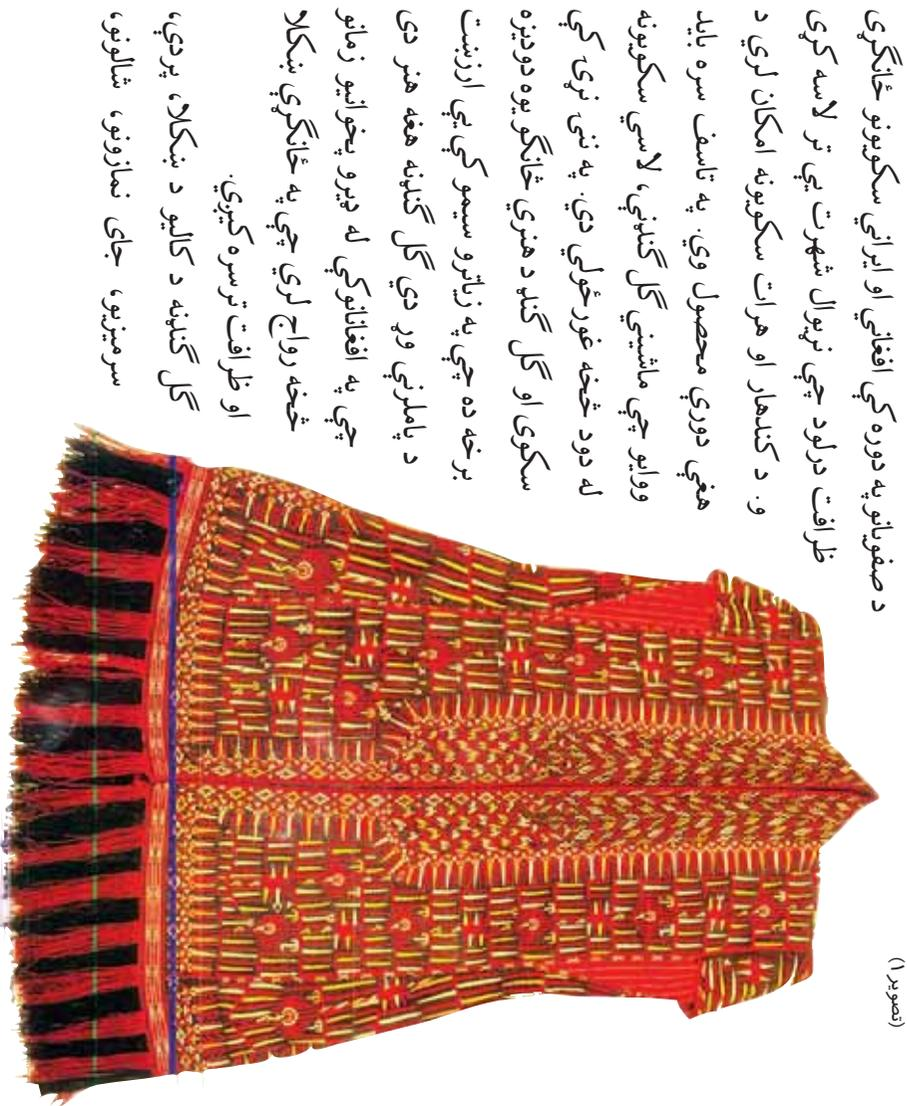 د صفويانو په دوره کې افغاني او ايراني سکويونو ځانګړی
ظرافت درلود چې نړيوال شهرت يې تر لاسه کړی
و. د کندهار او هرات سکويونه امکان لري د
هغې دورې محصول وي. په تاسف سره بايد
ووايو چې ماشيني ګل ګنډنې، لاسي سکويونه
له دود څخه غورځولي دي. په ننۍ نړۍ کې
سکوی او ګل ګنډ د هنري څانګو يوه دوديزه
برخه ده چې په زياترو سيمو کې يې ارزښت
د پاملرنې وړ دی ګل ګنډنه هغه هنر دی
چې په افغانانوکې له ډيرو پخوانيو زمانو
څخه رواج لري چې په ځانګړې ښکلا
او ظرافت تر سره کيږي.
ګل ګنډنه د کاليو د ښکلا، پردې،
سرميزيو، جای نمازونو، شالونو،
(تصوير ۱)